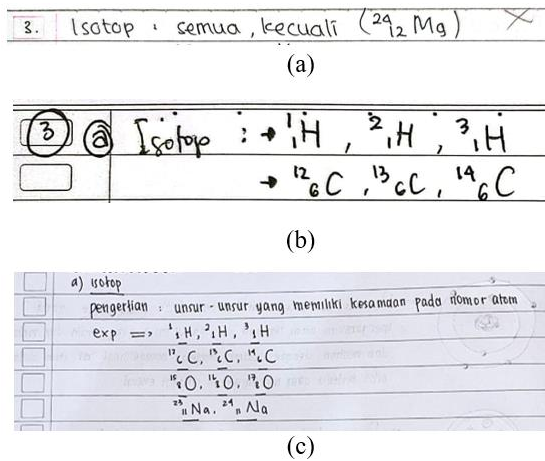 3. Isotop : semua, kecuali (²⁴₁₂Mg)
(a)
3 a Isotop : → ¹₁H, ²₁H, ³₁H
→ ¹²₆C, ¹³₆C, ¹⁴₆C
(b)
a) isotop
pengertian : unsur-unsur yang memiliki kesamaan pada nomor atom
exp => ¹₁H, ²₁H, ³₁H
¹²₆C, ¹³₆C, ¹⁴₆C
¹⁵₈O, ¹⁶₈O, ¹⁷₈O
²³₁₁Na, ²⁴₁₁Na
(c)